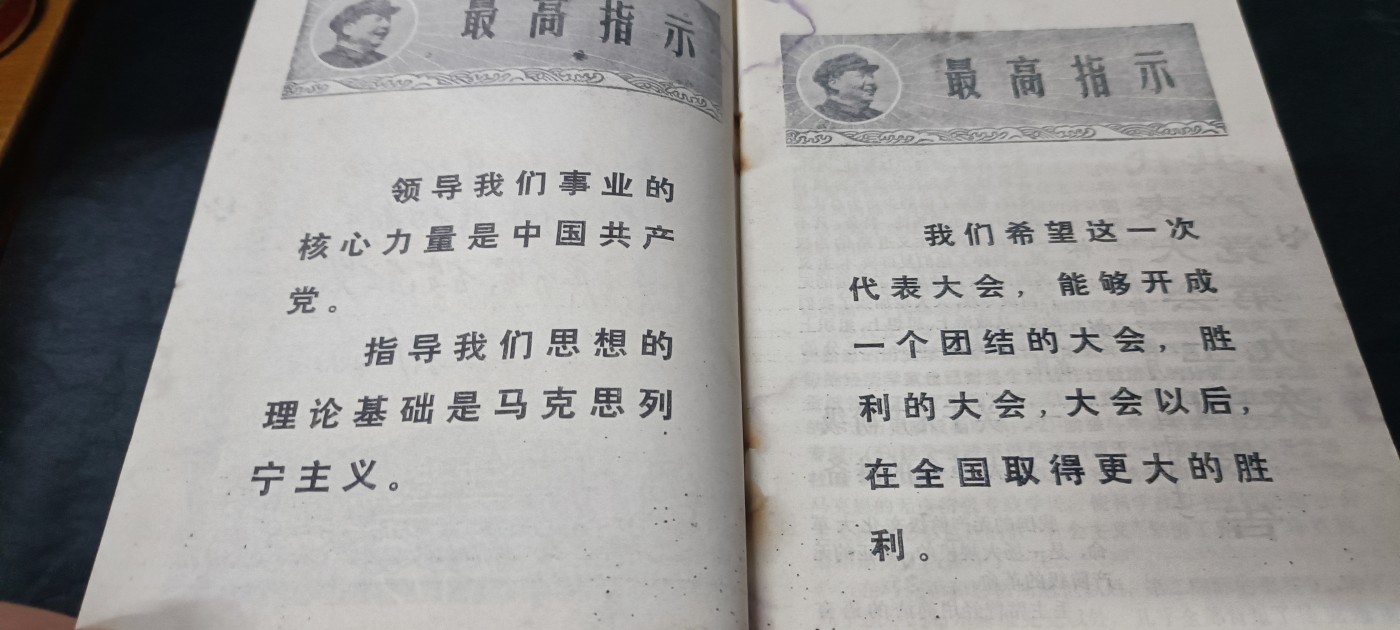 最高指示
领导我们事业的
核心力量是中国共产
党。
指导我们思想的
理论基础是马克思列
宁主义。
最高指示
我们希望这一次
代表大会，能够开成
一个团结的大会，胜
利的大会，大会以后，
在全国取得更大的胜
利。